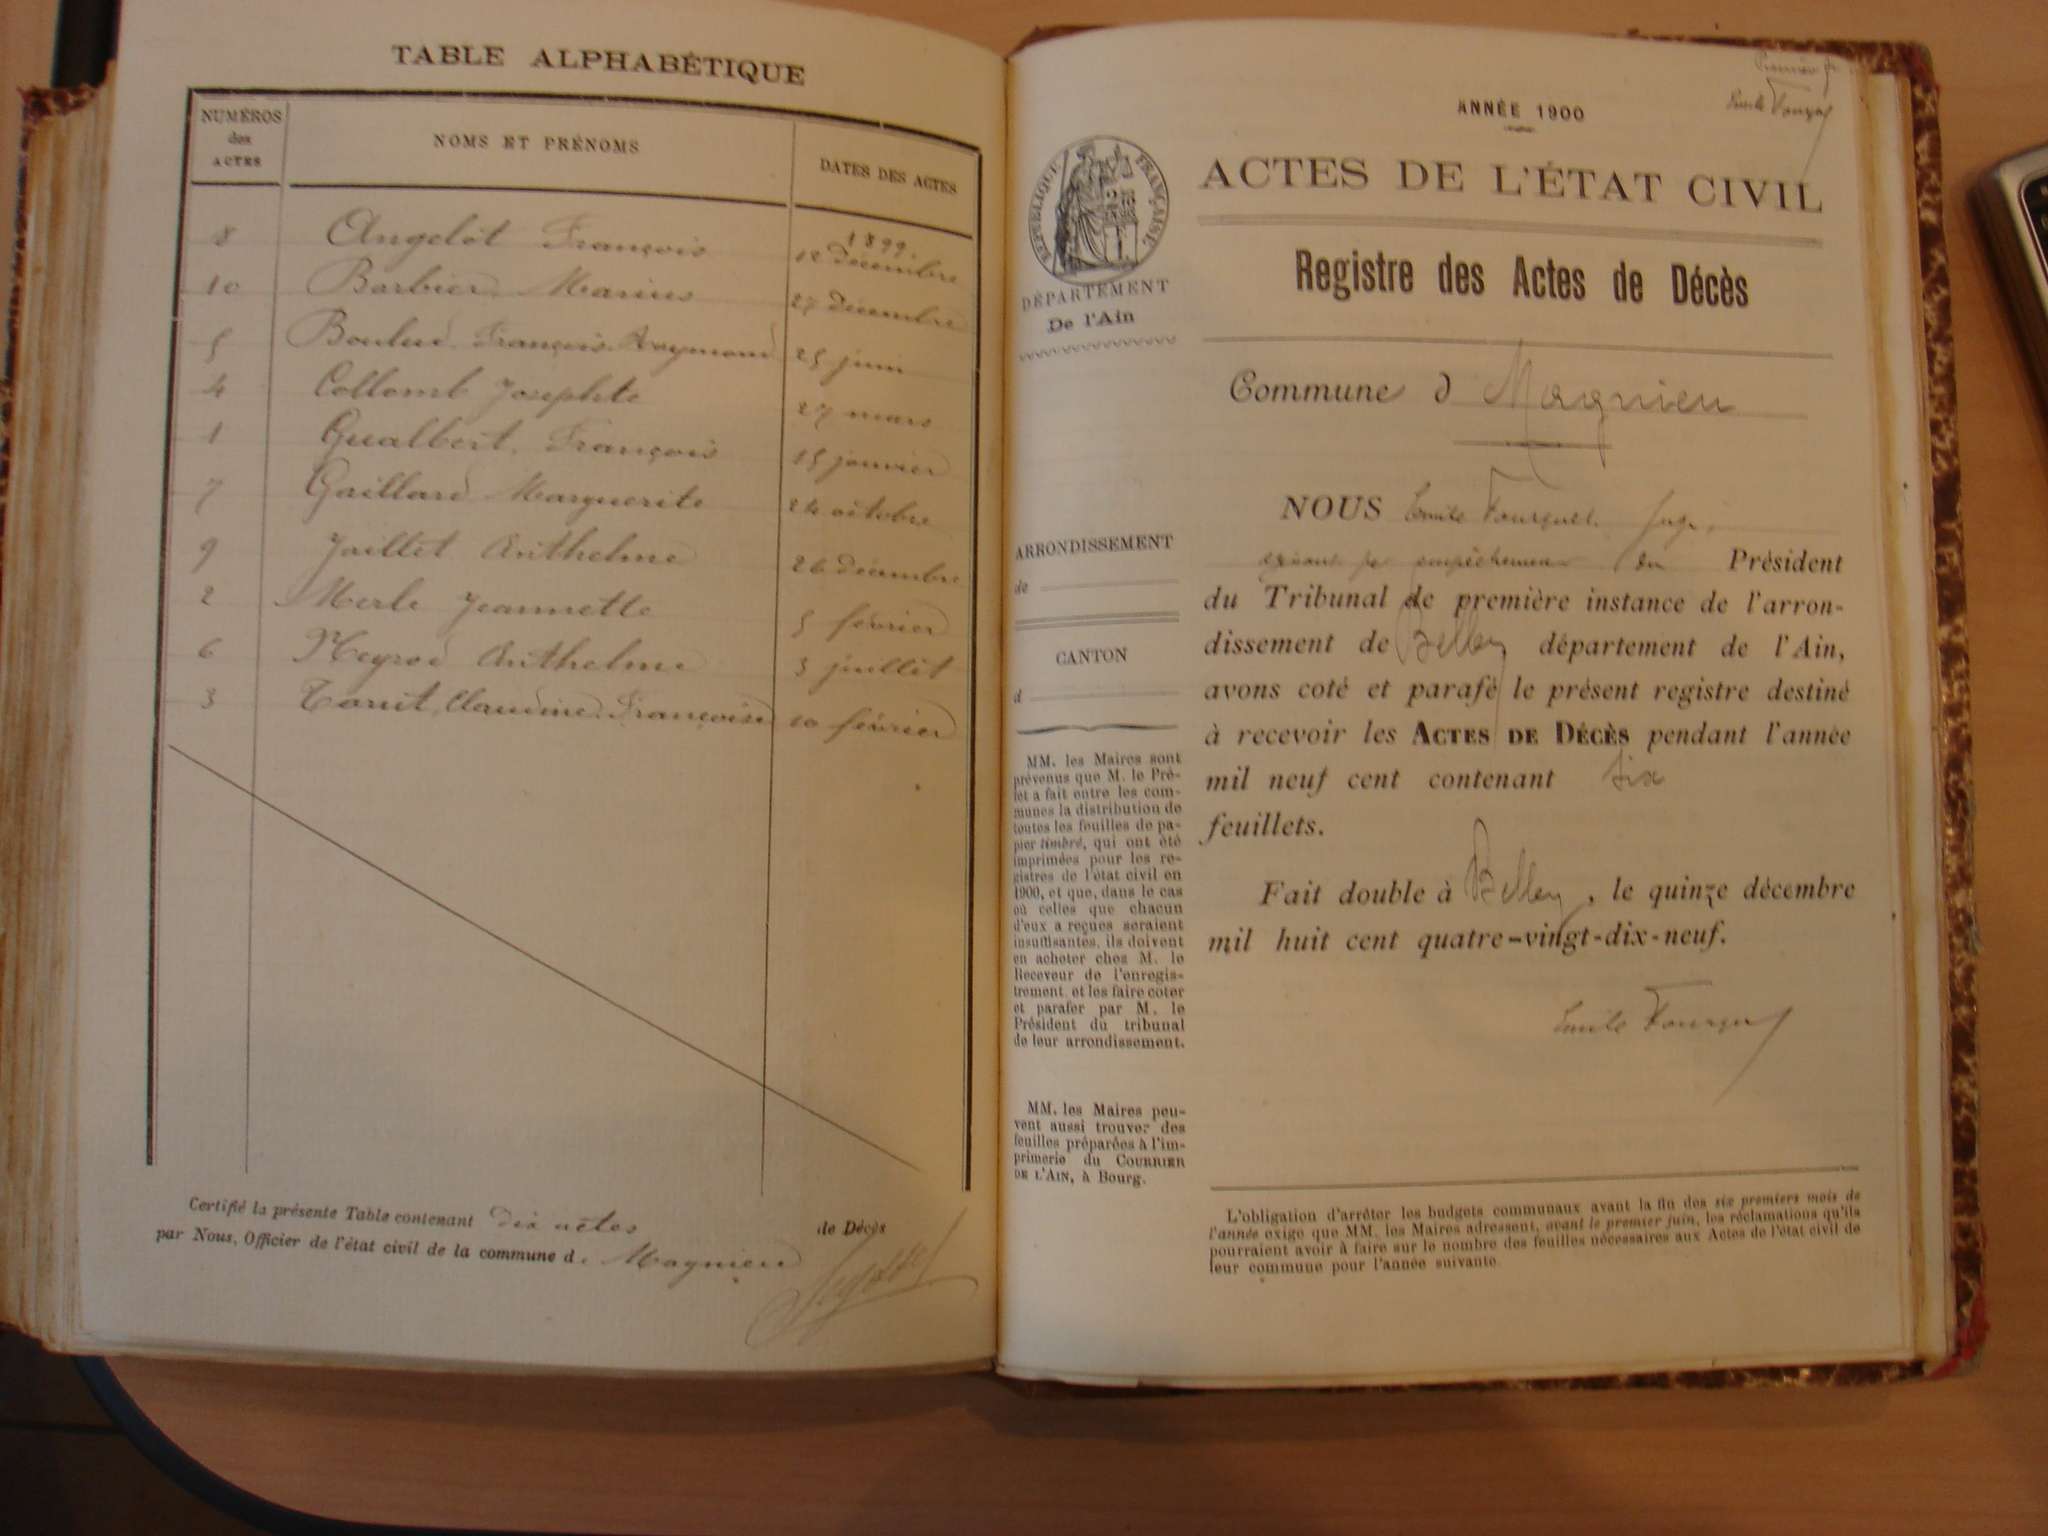 TABLE ALPHABÉTIQUE
NUMÉROS des ACTES
NOMS ET PRÉNOMS
DATES DES ACTES
1899.
8 Angelot François 12 décembre
10 Barbier Marius 27 décembre
5 François Raymond 25 juin
4 Collomb Josephte 27 mars
1 Gualbert, François 15 janvier
7 Gaillard Marguerite 24 octobre
9 Jaillet Anthelme 26 décembre
2 Merle Jeannette 5 février
6 Anthelme 3 juillet
3 Claudine Françoise 10 février
Certifié la présente Table contenant dix actes de Décès
par Nous, Officier de l'état civil de la commune d. Magnieu
Emile Fourquet
ANNÉE 1900
ACTES DE L'ÉTAT CIVIL
RÉPUBLIQUE FRANÇAISE
DÉPARTEMENT
De l'Ain
Registre des Actes de Décès
Commune d Magnieu
NOUS Emile Fourquet, juge,
empêchement du Président
du Tribunal de première instance de l'arron-
dissement de Belley département de l'Ain,
avons coté et parafé le présent registre destiné
à recevoir les ACTES DE DÉCÈS pendant l'année
mil neuf cent contenant six
feuillets.
Fait double à Belley, le quinze décembre
mil huit cent quatre-vingt-dix-neuf.
Emile Fourquet
ARRONDISSEMENT
de
CANTON
d
MM. les Maires sont
prévenus que M. le Pré-
fet a fait entre les com-
munes la distribution de
toutes les feuilles de pa-
pier timbré, qui ont été
imprimées pour les re-
gistres de l'état civil en
1900, et que, dans le cas
où celles que chacun
d'eux a reçues seraient
insuffisantes, ils doivent
en acheter chez M. le
Receveur de l'enregis-
trement, et les faire coter
et parafer par M. le
Président du tribunal
de leur arrondissement.
MM. les Maires peu-
vent aussi trouver des
feuilles préparées à l'im-
primerie du COURRIER
DE L'AIN, à Bourg.
L'obligation d'arrêter les budgets communaux avant la fin des six premiers mois de
l'année exige que MM. les Maires adressent, avant le premier juin, les réclamations qu'ils
pourraient avoir à faire sur le nombre des feuilles nécessaires aux Actes de l'état civil de
leur commune pour l'année suivante.